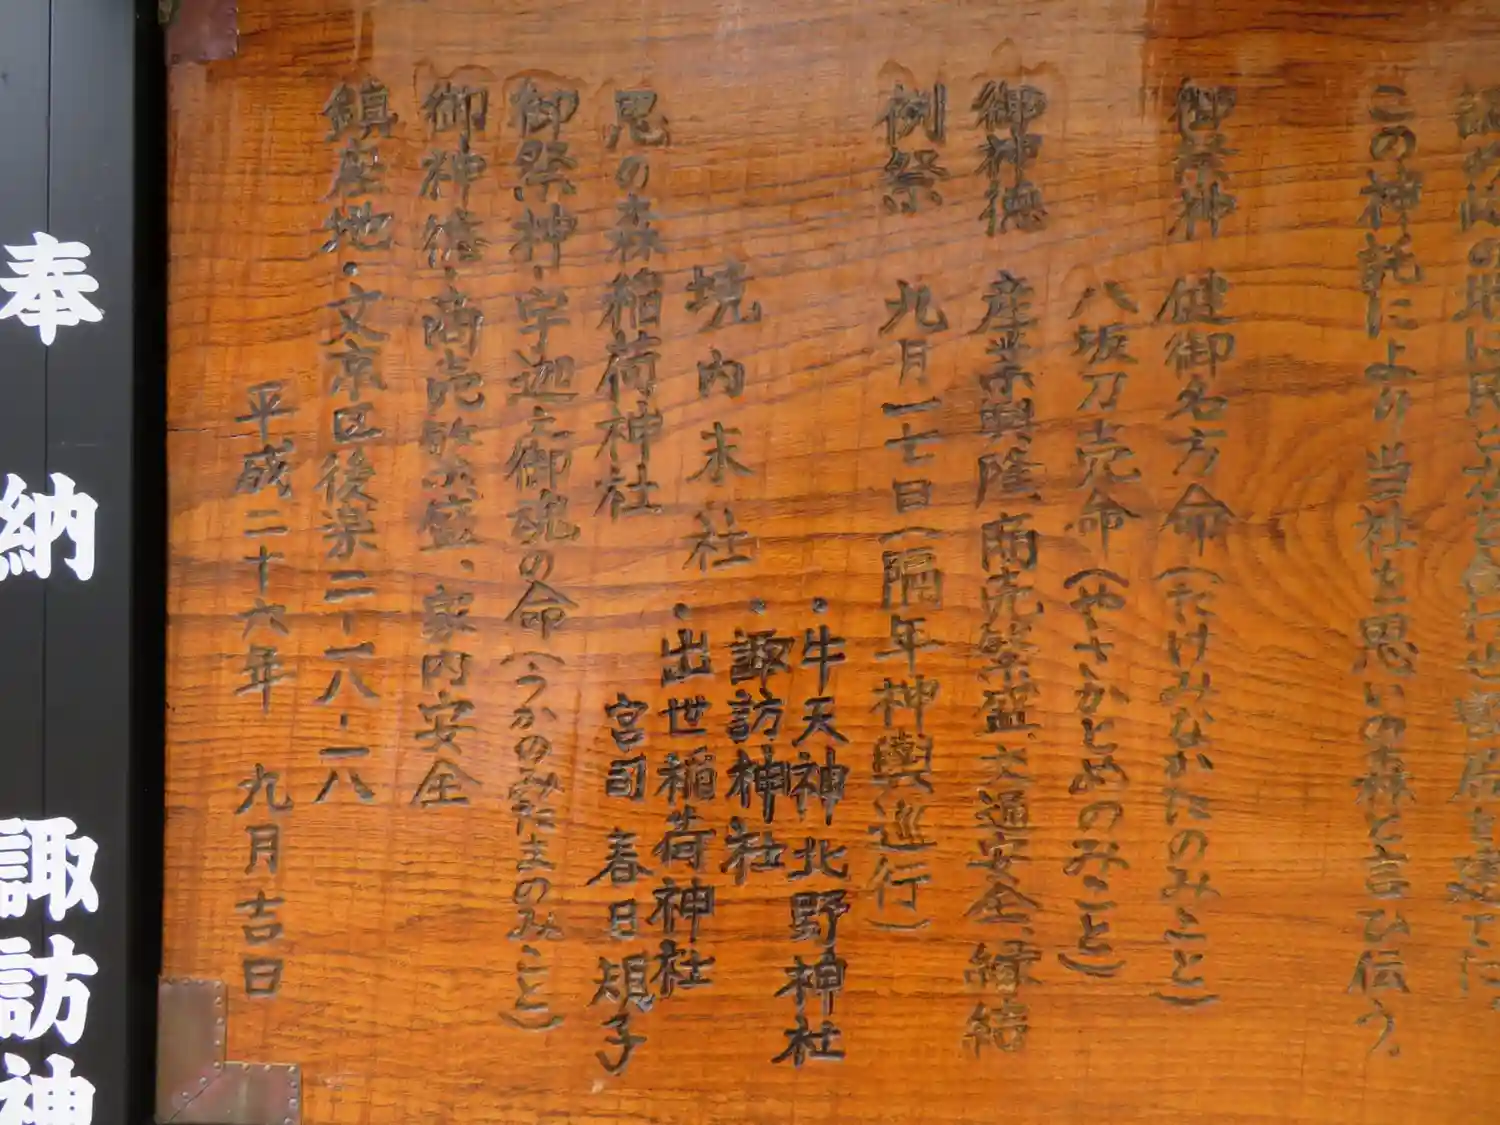 この神託により当社を思いの森と言ひ伝う。
御祭神 健御名方命(たけみなかたのみこと)
八坂刀売命(やさかとめのみこと)
御神徳 産業興隆、商売繁盛、交通安全、縁結
例祭 九月一七日(隔年神輿巡行)
境内末社
・牛天神北野神社
・諏訪神社
・出世稲荷神社
思の森稲荷神社
宮司 春日規子
御祭神・宇迦之御魂の命(うかのみたまのみこと)
御神徳・商売繁盛、家内安全
鎮座地・文京区後楽二-一八-一八
平成二十六年 九月吉日
奉納 諏訪神